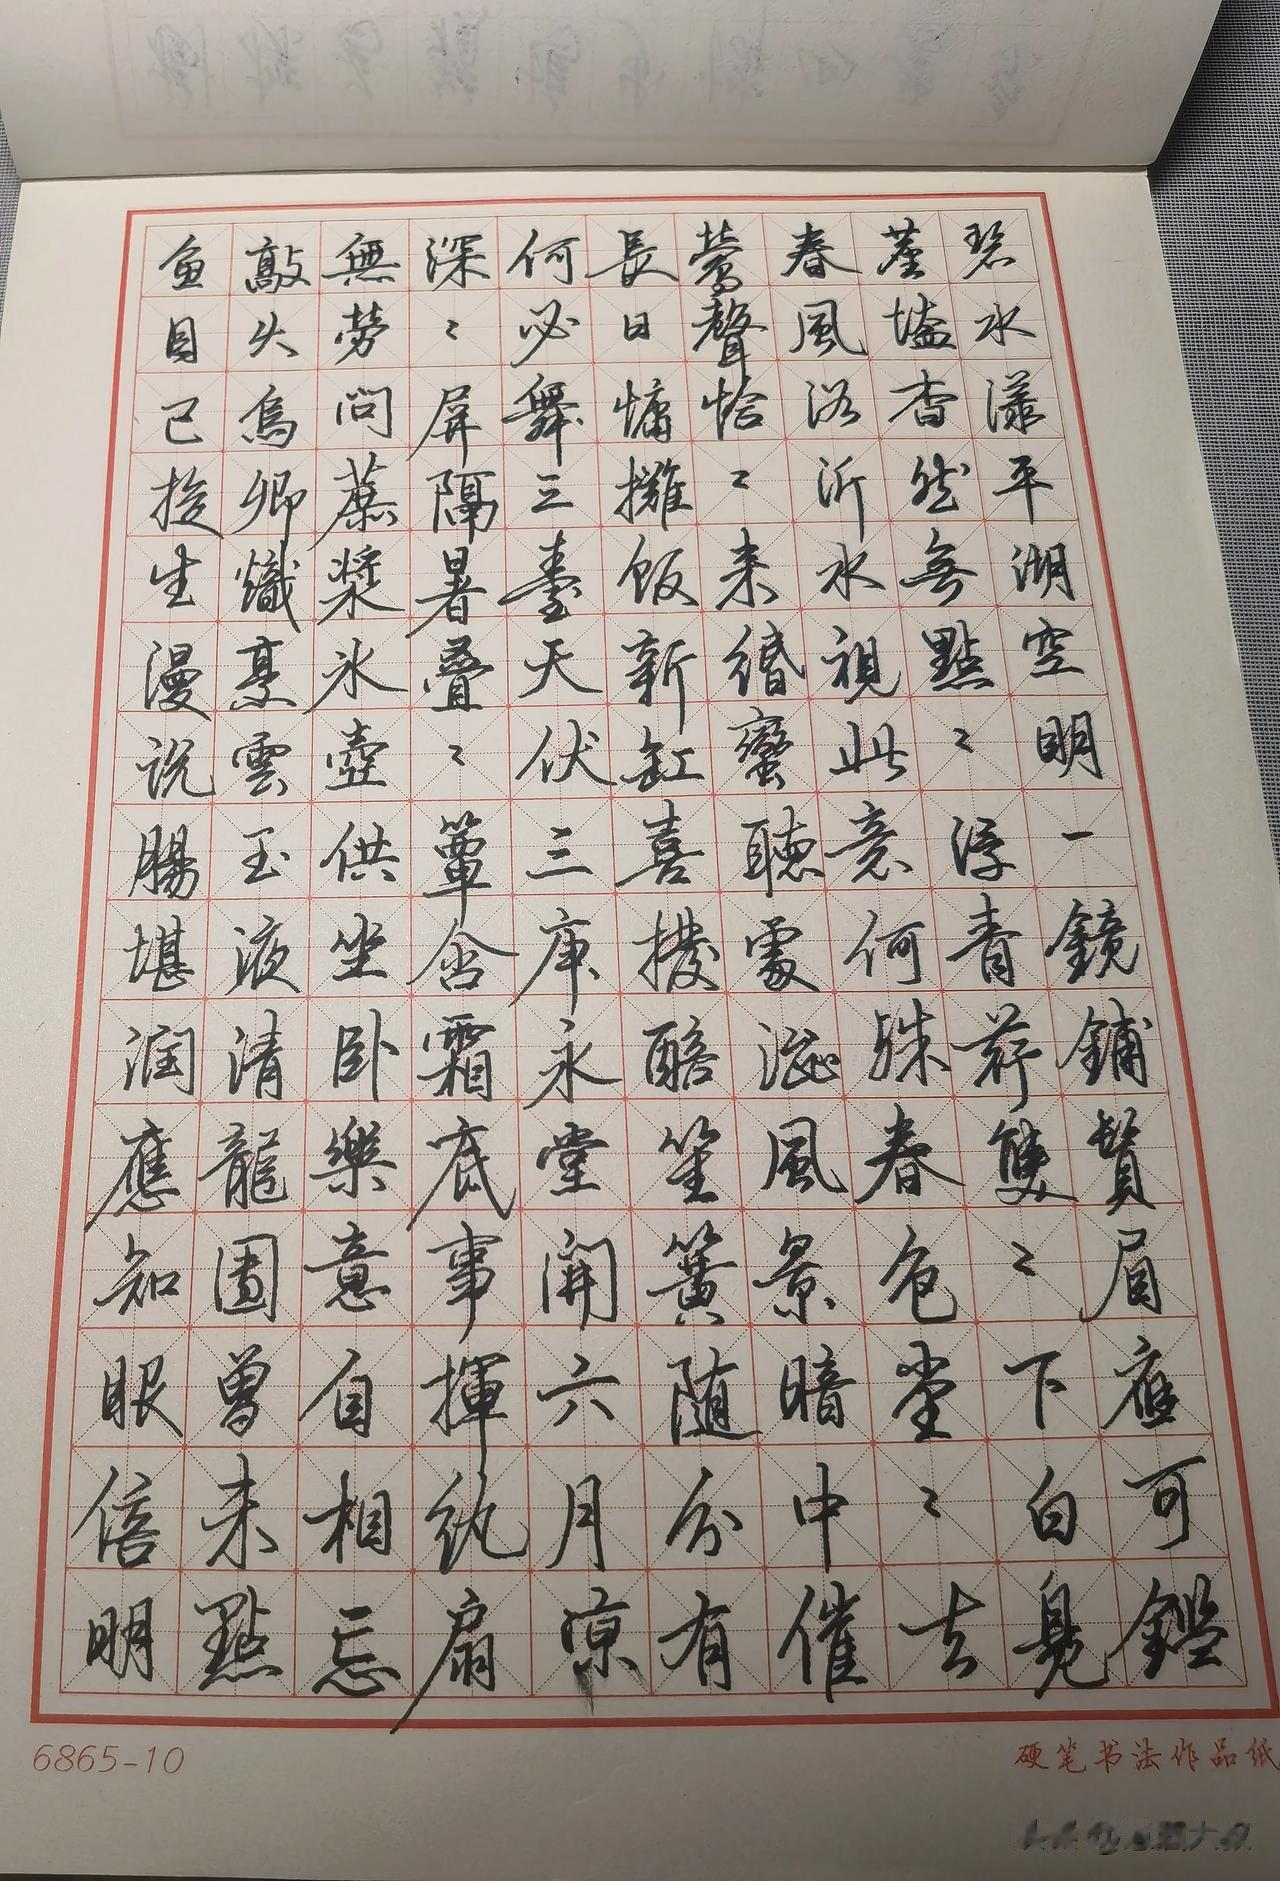 碧水漾平湖空明一鏡鋪鬢眉應可鑑
壒杳然無點〻浮青荇雙〻下白鳧
春風浴沂水視此意何殊春色堂〻去
鶯聲恰〻來緡蠻聽處澁風景暗中催
長日慵攤飯新缸喜撥醅笙簧隨分有
何必舞三臺天伏三庚永堂開六月涼
深〻屏隔暑疊〻簟含霜底事揮紈扇
無勞問蔗漿冰壺供坐臥樂意自相忘
敲火烏卿熾烹雲玉液清龍團曾未點
魚目已投生漫說腸堪潤應知眼倍明
6865-10
硬笔书法作品纸